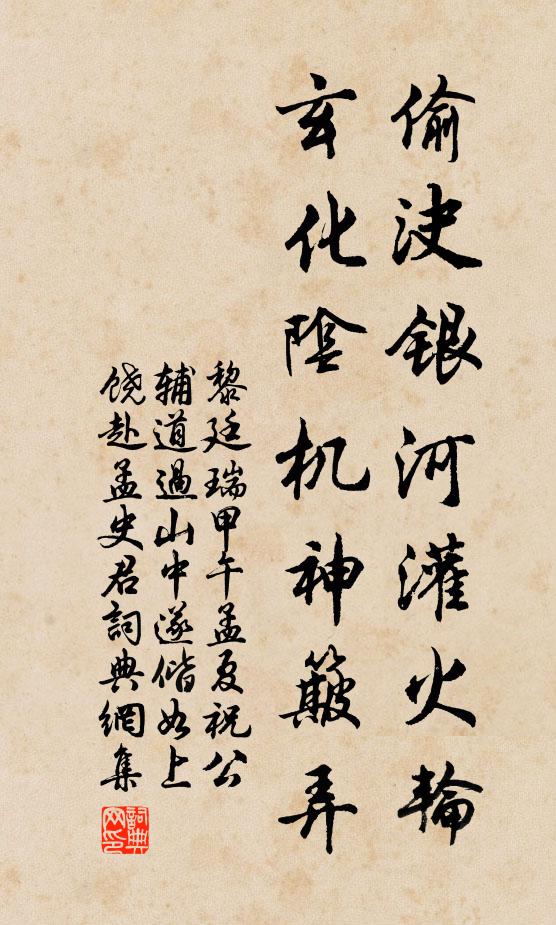 偷決銀河灌火輪
玄化陰机神簸弄
黎廷瑞甲午孟夏祝公
辅道過山中遂偕如上
饶赴孟史君詞典網集
詞典网印